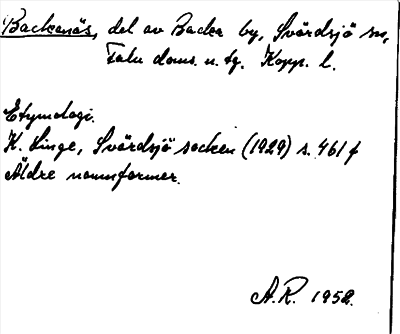 Backanäs, del av Backa by, Svärdsjö sn,
Falu doms. u. tg. Kopp. l.
Etymologi.
K. Linge, Svärdsjö socken (1929) s. 461 f
Äldre namnformer.
A.R. 1952.